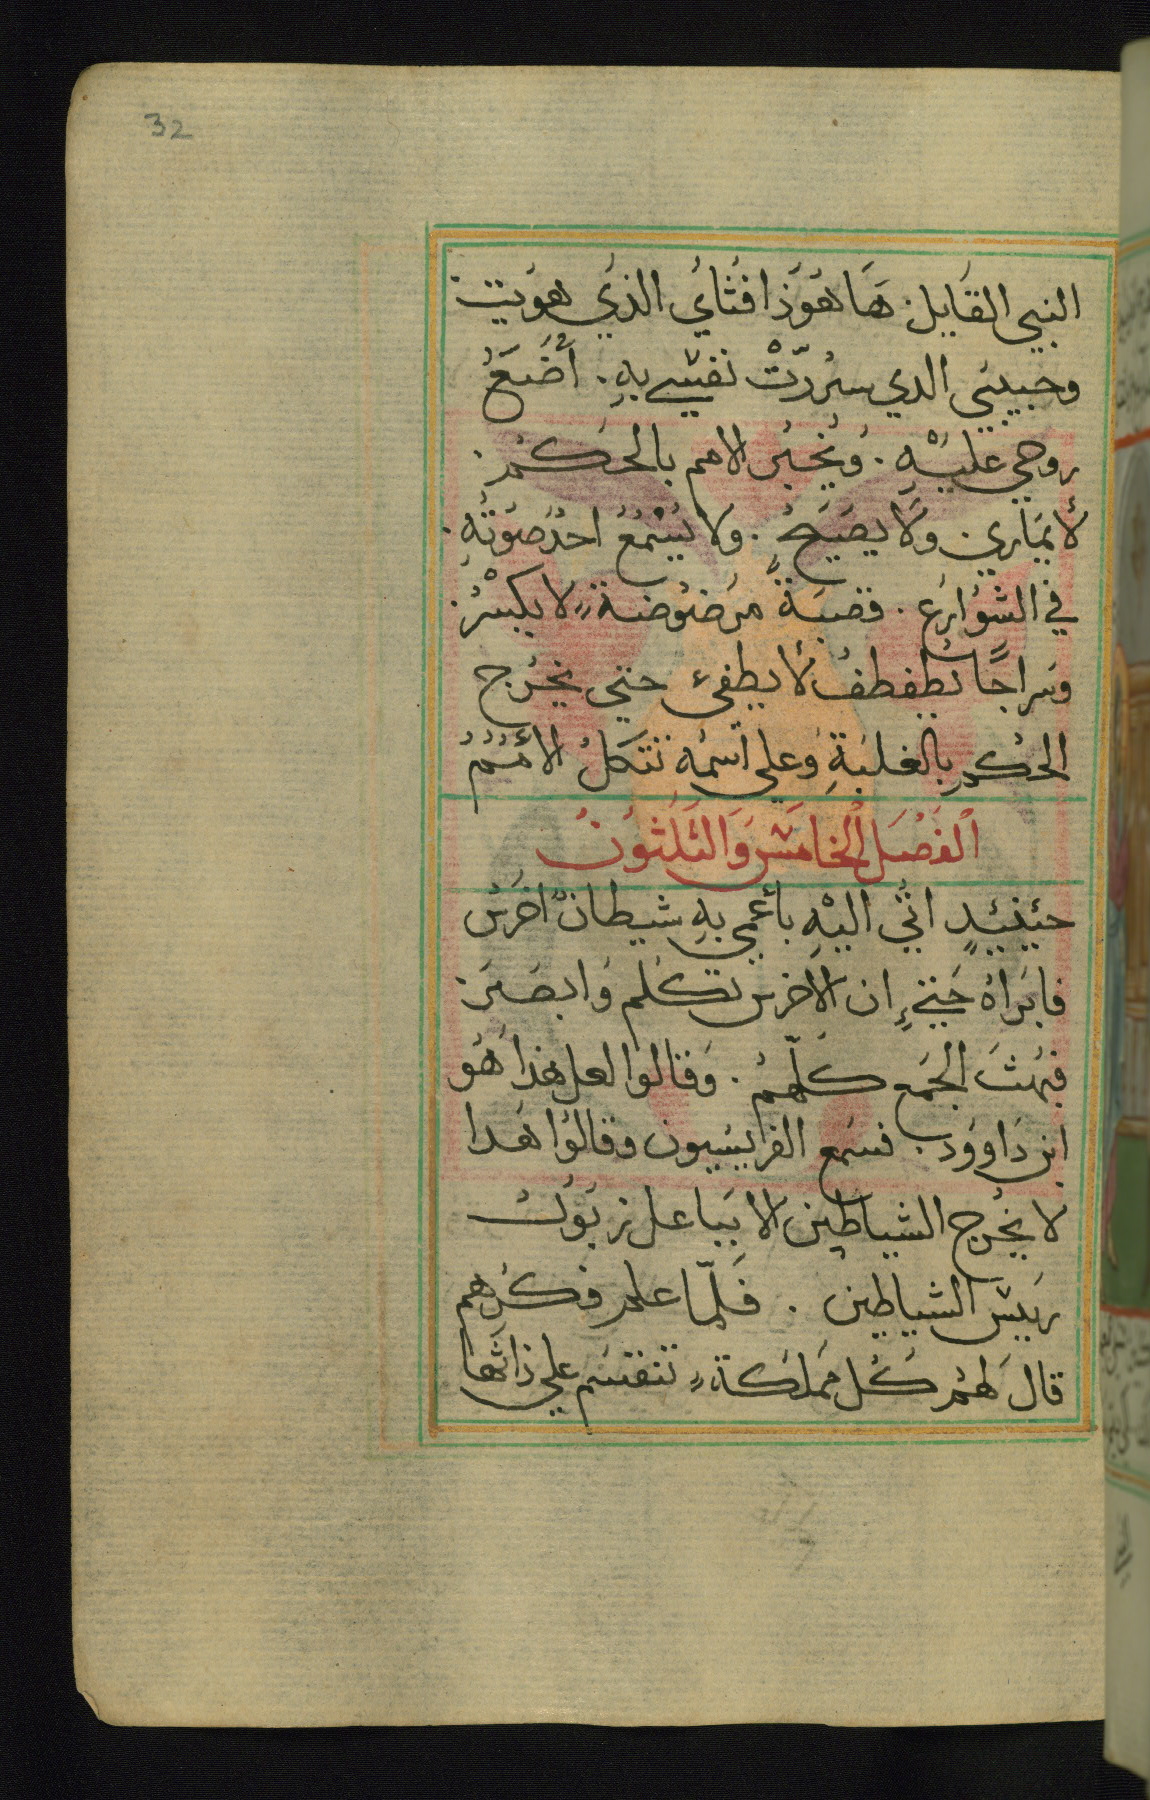 32
النبي القايل. هَا هَوَذا فَتَايُ الذي هويت.
وحبيبي الدي سُرّرتْ نفسي بهِ. أَضَعُ
روحي عليْهِ. وَيُخبُر الامم بالحَكُم.
لأ يمَاري. وَلَا يصَيحُ. ولا يسْمَعُ احدُ صَوتُهِ.
في الشوُارَع. قصبَةً مرَضوُضةٍ لا يكسْرُ.
وسَراجًا يُطفطفُ لأ يطفيء حتي يخرُج
الحُكم بالغلبَةِ وعلي اسمُه تتَكلُ الأمُمُ
اَلفَصْل الْخَامَسَ وَالثَلَثونُ
حيَنيُدٍ اتي اليْهِ باعمي بهِ شيطانٌ اخرَسُ
فابَراهُ حَتيٍ ان الاخرس تكلم وَابصَر.
فبَهتَ الجَمع كلّهمُ. وَقالوا لعل هَذا هُو
ابن دَاوود. فسَمع الفريسَيون وقالوُا هَدا
لا يخرُج الشياطين الا بَباعل زبَوُل
رَييسَ الشياطين. فَلمّا علم فكرُهم
قالَ لهُم كُل مَملكَةٍ تنقَسَم علي ذاتَها